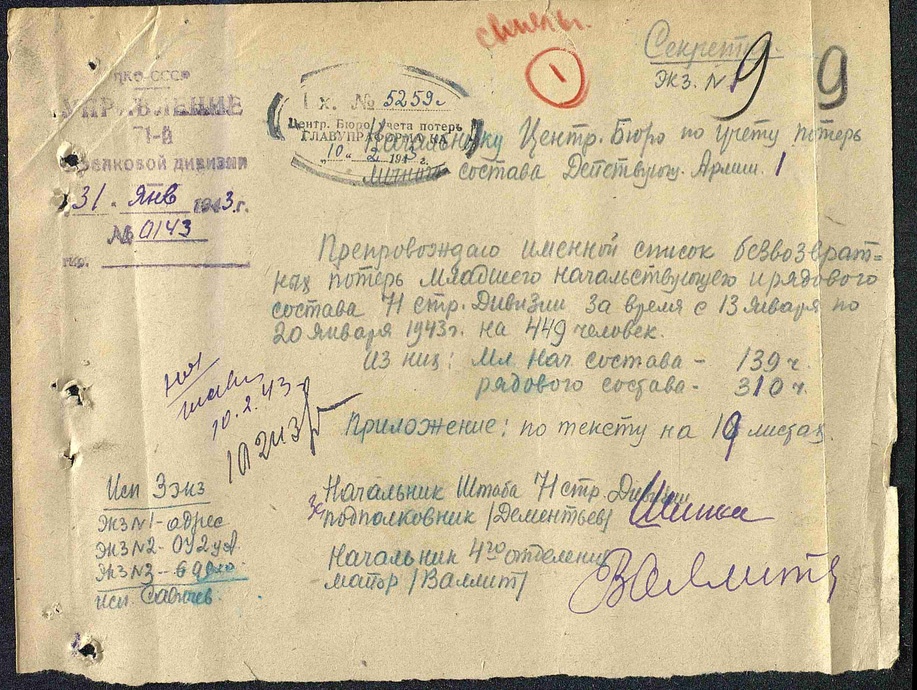 Секретно.
экз. № 1
9 9
1
НКО-СССР
УПРАВЛЕНИЕ
71-й
Стрелковой дивизии
31 . Янв 1943 г.
№ 0143
гор.
Вх. № 5259с
Центр. Бюро учета потерь
10 . 2 1943 г.
Начальнику Центр. Бюро по учету потерь
личного состава Действующ. Армии. 1
Препровождаю именной список безвозврат=
ных потерь младшего начальствующего и рядового
состава 71 стр. Дивизии за время с 13 Января по
20 Января 1943 г. на 449 человек.
Из них: Мл. Нач. состава - 139 ч.
рядового состава - 310 ч.
10.2.43
Приложение: по тексту на 19 листах.
Начальник Штаба 71 стр. Дивизии
подполковник /Дементьев/
Начальник 4го отделения
майор /Валлит/
Исп 3 экз
Экз № 1 - адрес
Экз № 2 - ОУ 2 уА
Экз № 3 - в дело
исп Савичев